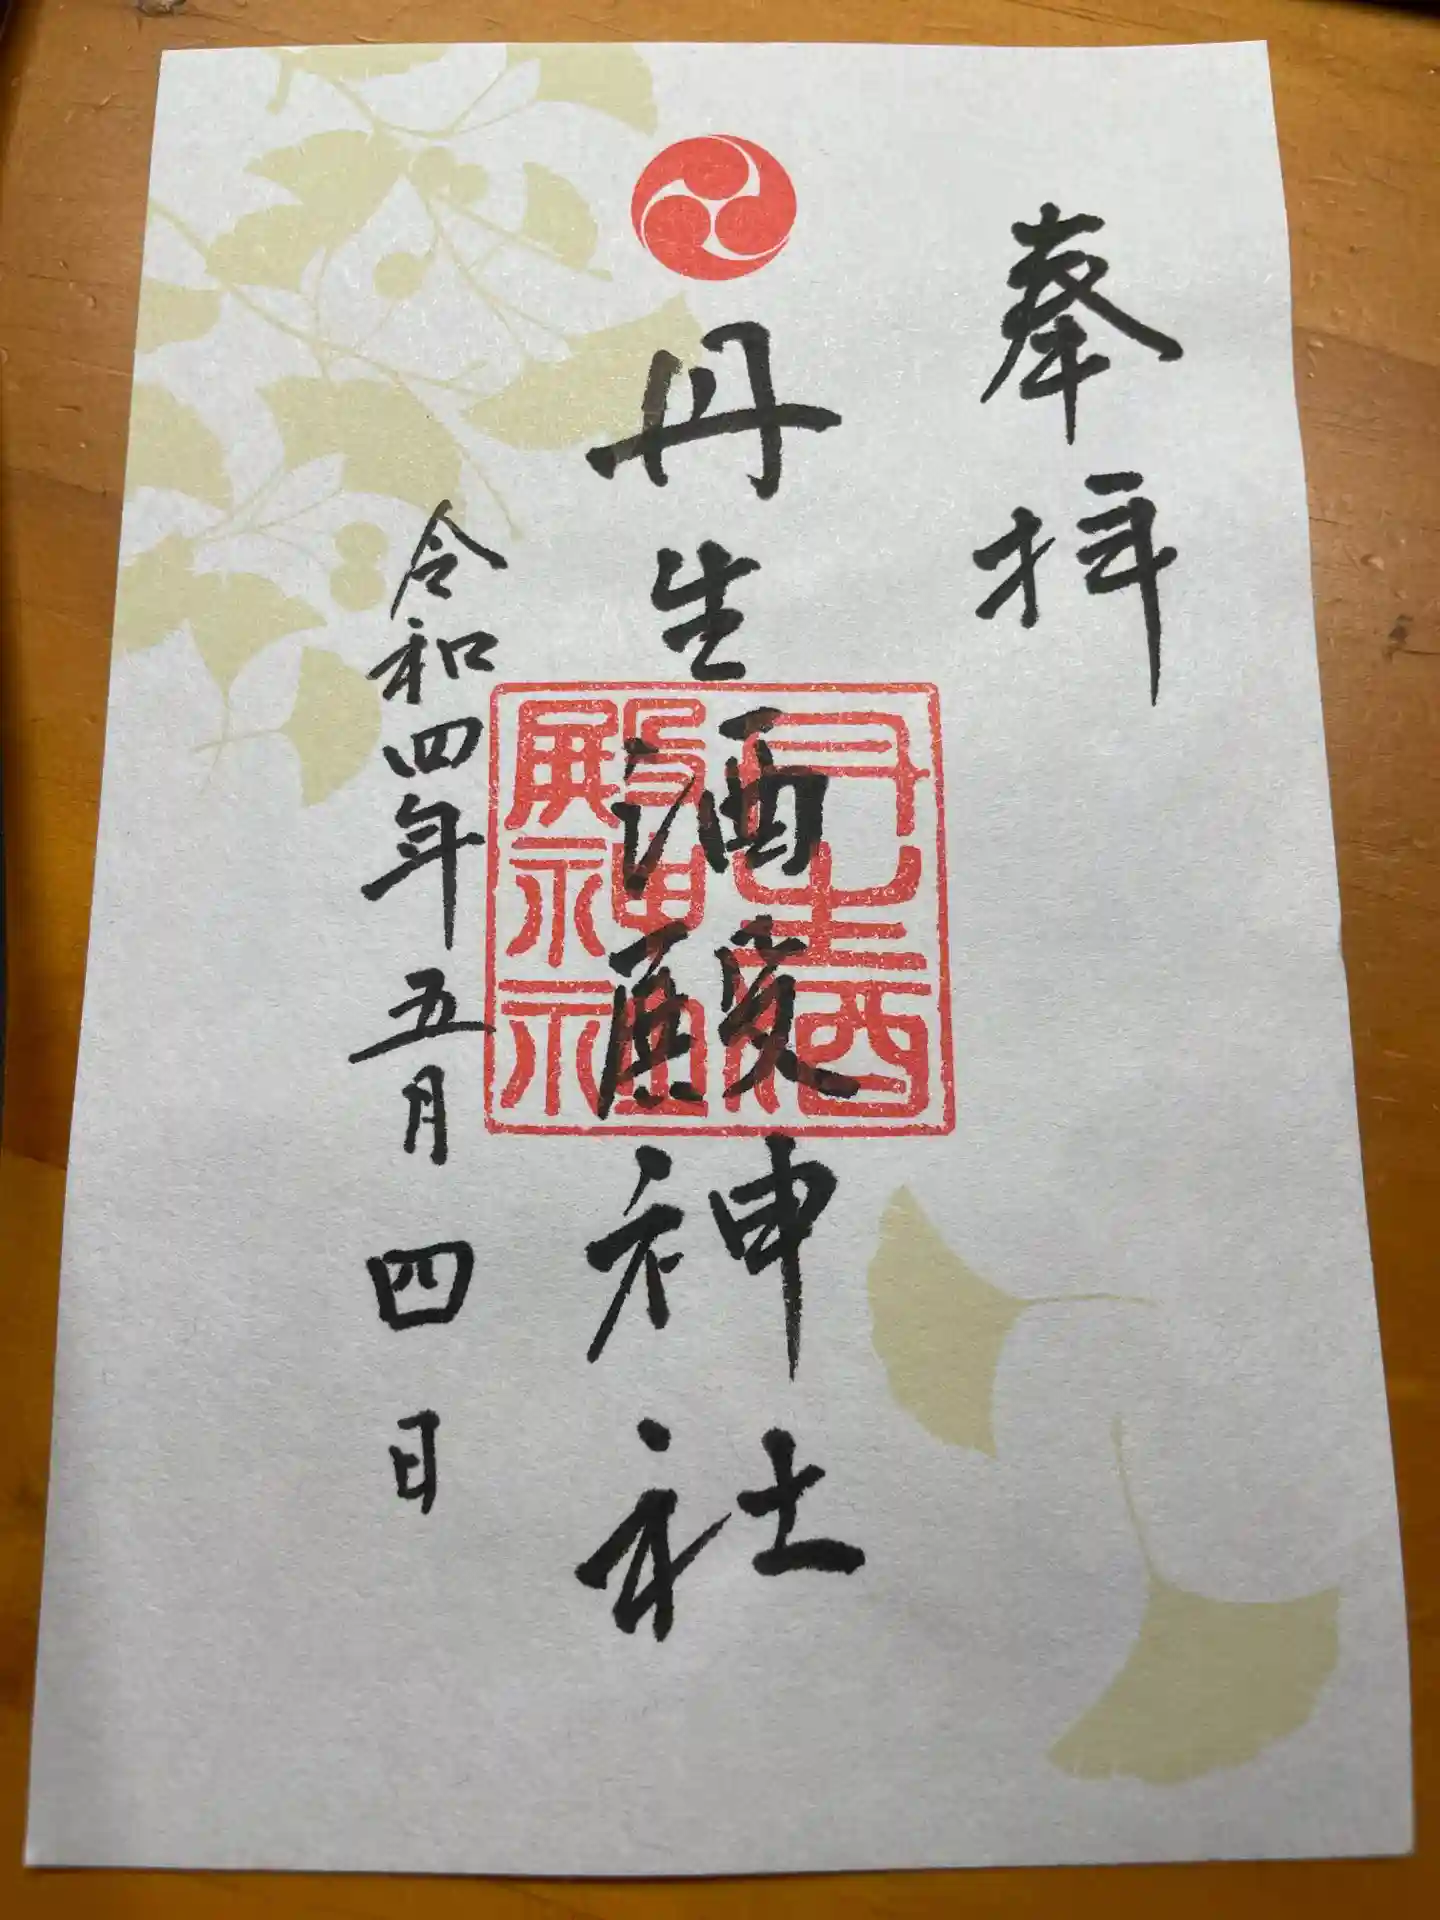 奉拝
丹生酒殿神社
丹生酒
殿神社
令和四年五月四日